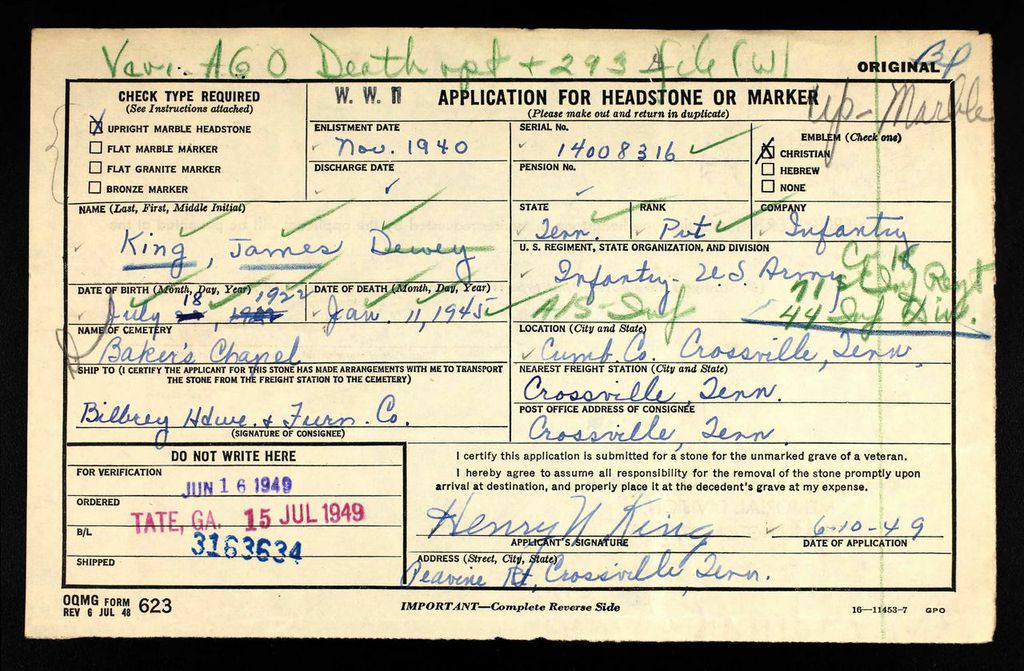 Veri. AGO Death rpt + 293 file (W)
ORIGINAL
BP
CHECK TYPE REQUIRED
(See Instructions attached)
X UPRIGHT MARBLE HEADSTONE
FLAT MARBLE MARKER
FLAT GRANITE MARKER
BRONZE MARKER
W. W. II
APPLICATION FOR HEADSTONE OR MARKER
(Please make out and return in duplicate)
Up-Marble
ENLISTMENT DATE
Nov. 1940
DISCHARGE DATE
SERIAL No.
14008316
PENSION No.
EMBLEM (Check one)
X CHRISTIAN
HEBREW
NONE
NAME (Last, First, Middle Initial)
King, James Dewey
STATE
Tenn.
RANK
Pvt
COMPANY
Infantry
U. S. REGIMENT, STATE ORGANIZATION, AND DIVISION
Infantry - U S Army
Inf Regt
A/S-Inf
44 Inf Div.
DATE OF BIRTH (Month, Day, Year)
July 18, 1922
DATE OF DEATH (Month, Day, Year)
Jan. 11, 1945
NAME OF CEMETERY
Baker's Chapel
LOCATION (City and State)
Cumb. Co. Crossville, Tenn.
SHIP TO (I CERTIFY THE APPLICANT FOR THIS STONE HAS MADE ARRANGEMENTS WITH ME TO TRANSPORT
THE STONE FROM THE FREIGHT STATION TO THE CEMETERY)
Bilbrey Hdwe. & Furn. Co.
(SIGNATURE OF CONSIGNEE)
NEAREST FREIGHT STATION (City and State)
Crossville, Tenn.
POST OFFICE ADDRESS OF CONSIGNEE
Crossville, Tenn.
DO NOT WRITE HERE
FOR VERIFICATION
JUN 16 1949
ORDERED
TATE, GA. 15 JUL 1949
B/L
3163634
SHIPPED
I certify this application is submitted for a stone for the unmarked grave of a veteran.
I hereby agree to assume all responsibility for the removal of the stone promptly upon
arrival at destination, and properly place it at the decedent's grave at my expense.
Henry N King
6-10-49
APPLICANT'S SIGNATURE
DATE OF APPLICATION
ADDRESS (Street, City, State)
Peavine Rt, Crossville, Tenn.
OQMG FORM 623
REV 6 JUL 48
IMPORTANT—Complete Reverse Side
16—11453-7 GPO